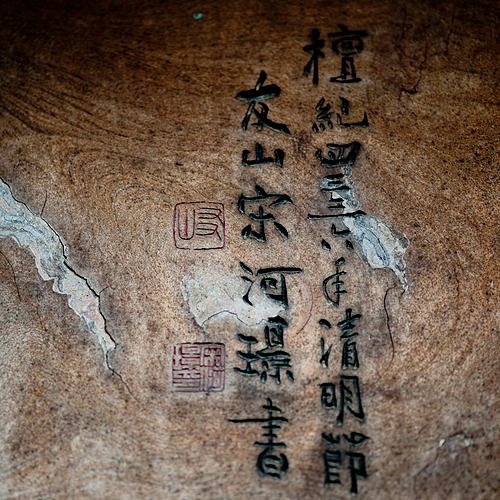 檀紀四三三六年清明節
友山宋河璟書
友山